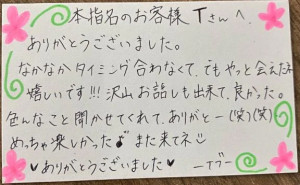 本指名のお客様 Tさんへ
ありがとうございました。
なかなかタイミング合わなくて、でもやっと会えたネ
嬉しいです!!! 沢山お話しも出来て、良かった。
色んなこと聞かせてくれて、ありがとー(笑)(笑)
めっちゃ楽しかった♪ また来てネ☺
♥ありがとうございました♥